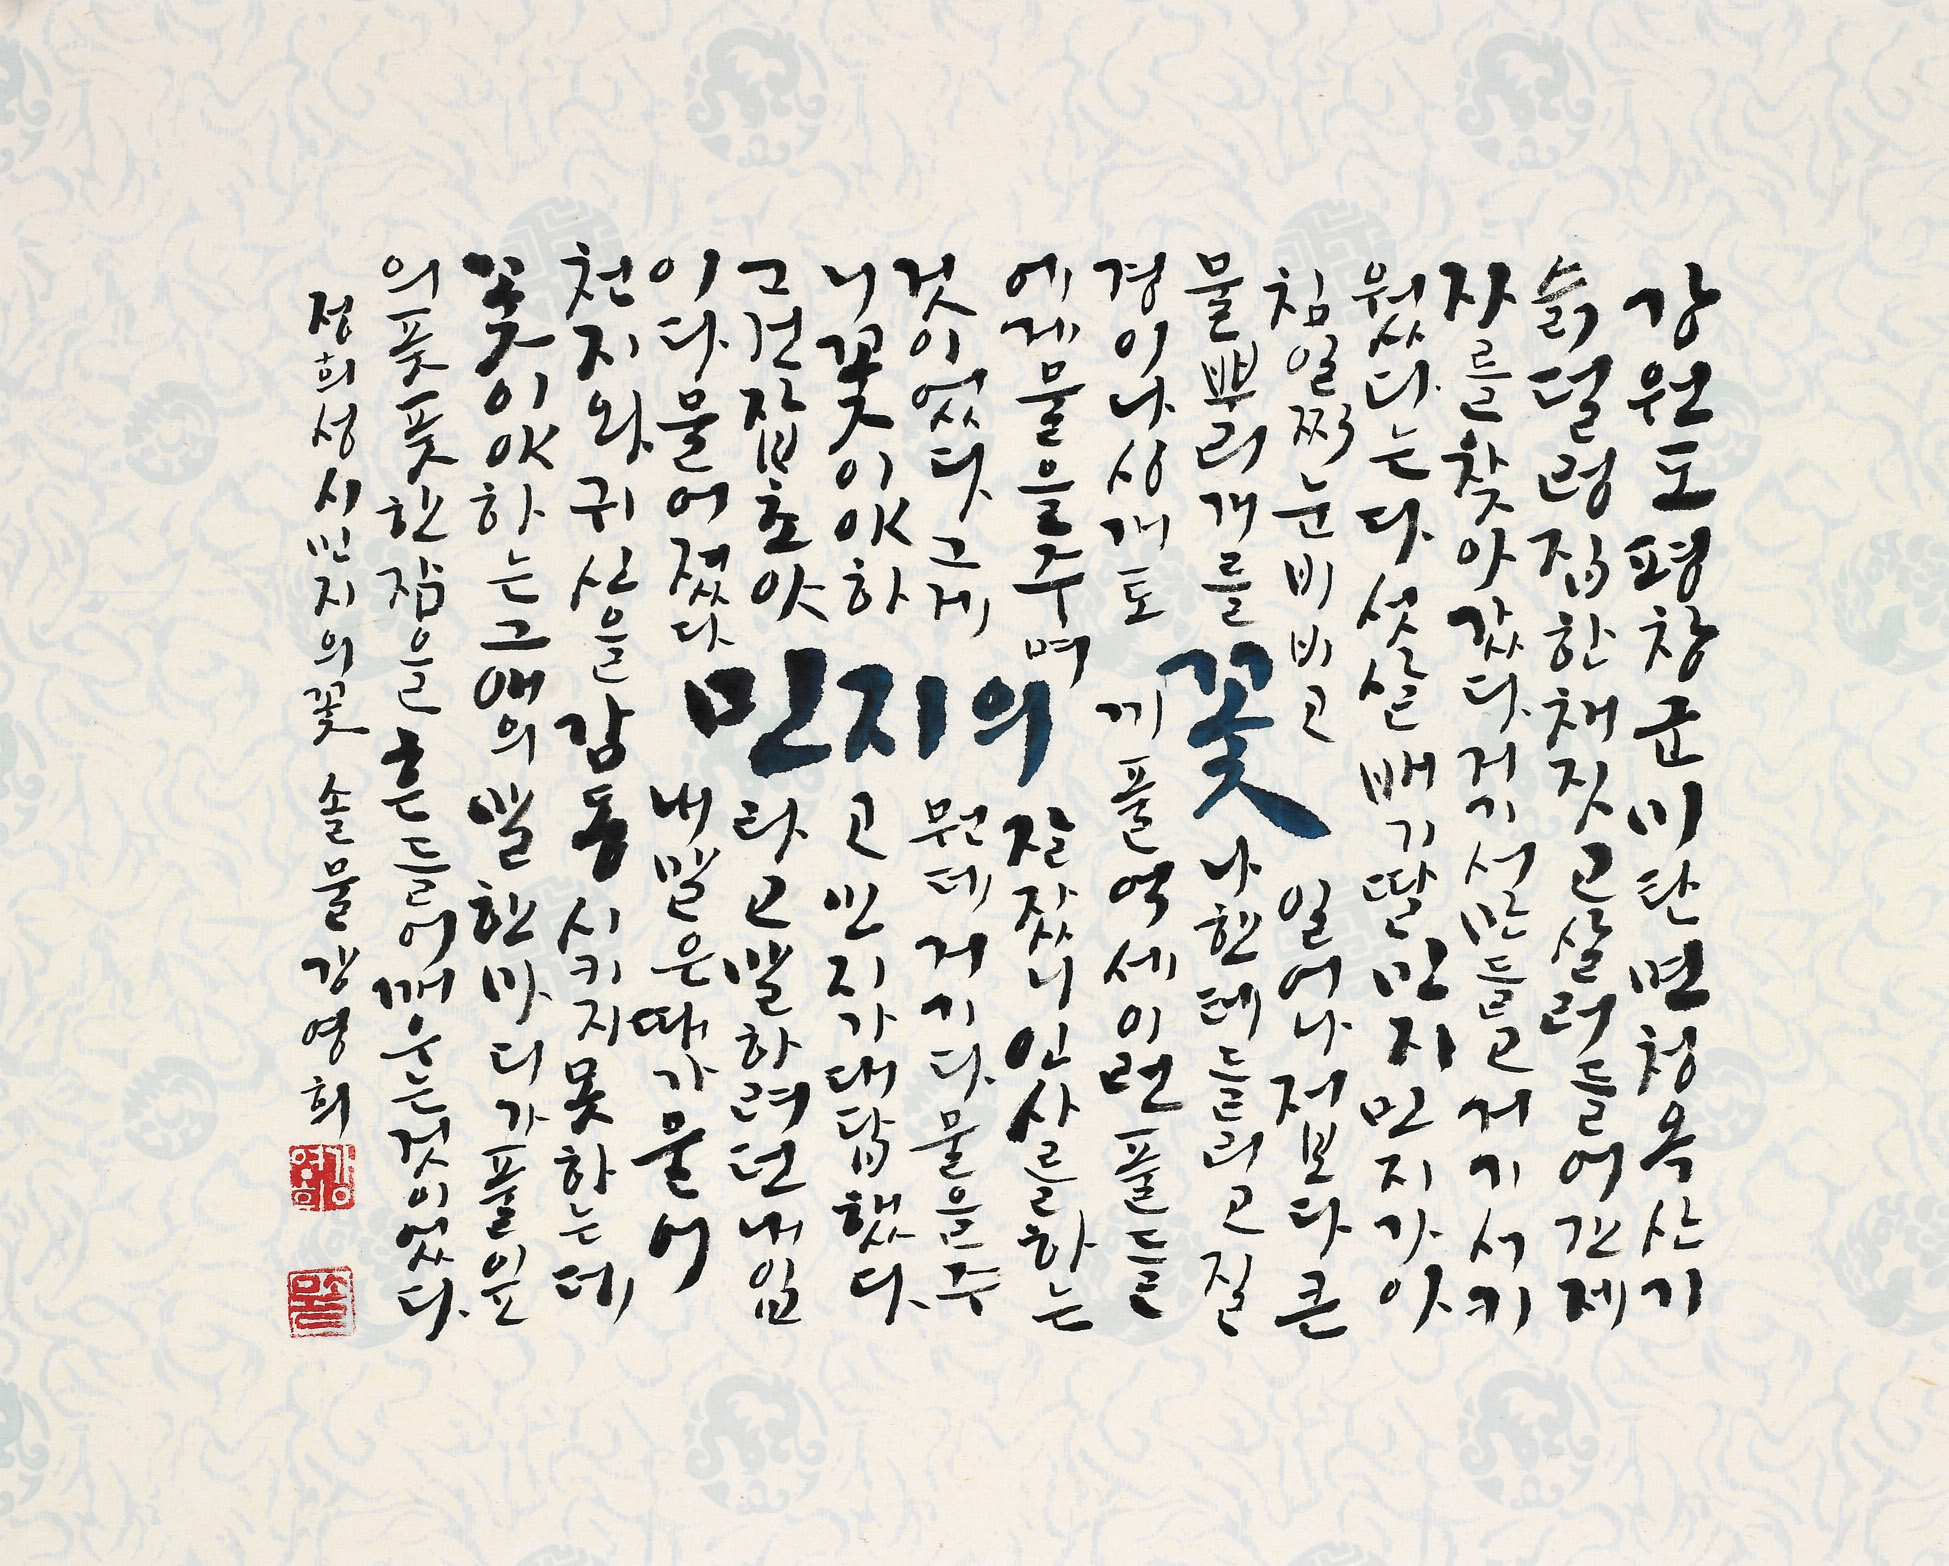 강원도 평창군 미탄면 청옥산기
슭 덜렁 집 한 채 짓고 살러 들어간 제
자를 찾아갔다. 거기서 만들고 거기서 키
웠다는 다섯 살배기 딸 민지 민지가 아
침 일찍 눈 비비고 일어나 저보다 큰
물뿌리개를 나한테 들리고 질
경이 나싱개 토끼풀 억세 이런 풀들
에게 물을 주며 잘 잤니 인사를 하는
것이었다. 그게 뭔데 거기다 물을 주
니 꽃이야 하고 민지가 대답했다.
그건 잡초야 라고 말하려던 내 입
이 다물어졌다 내 말은 때가 묻어
천지와 귀신을 감동시키지 못하는데
꽃이야 하는 그 애의 말 한마디가 풀잎
의 풋풋한 잠을 흔들어 깨우는 것이었다.
민지의 꽃
정희성 시 민지의 꽃 솔물 강영희
강영희
솔물